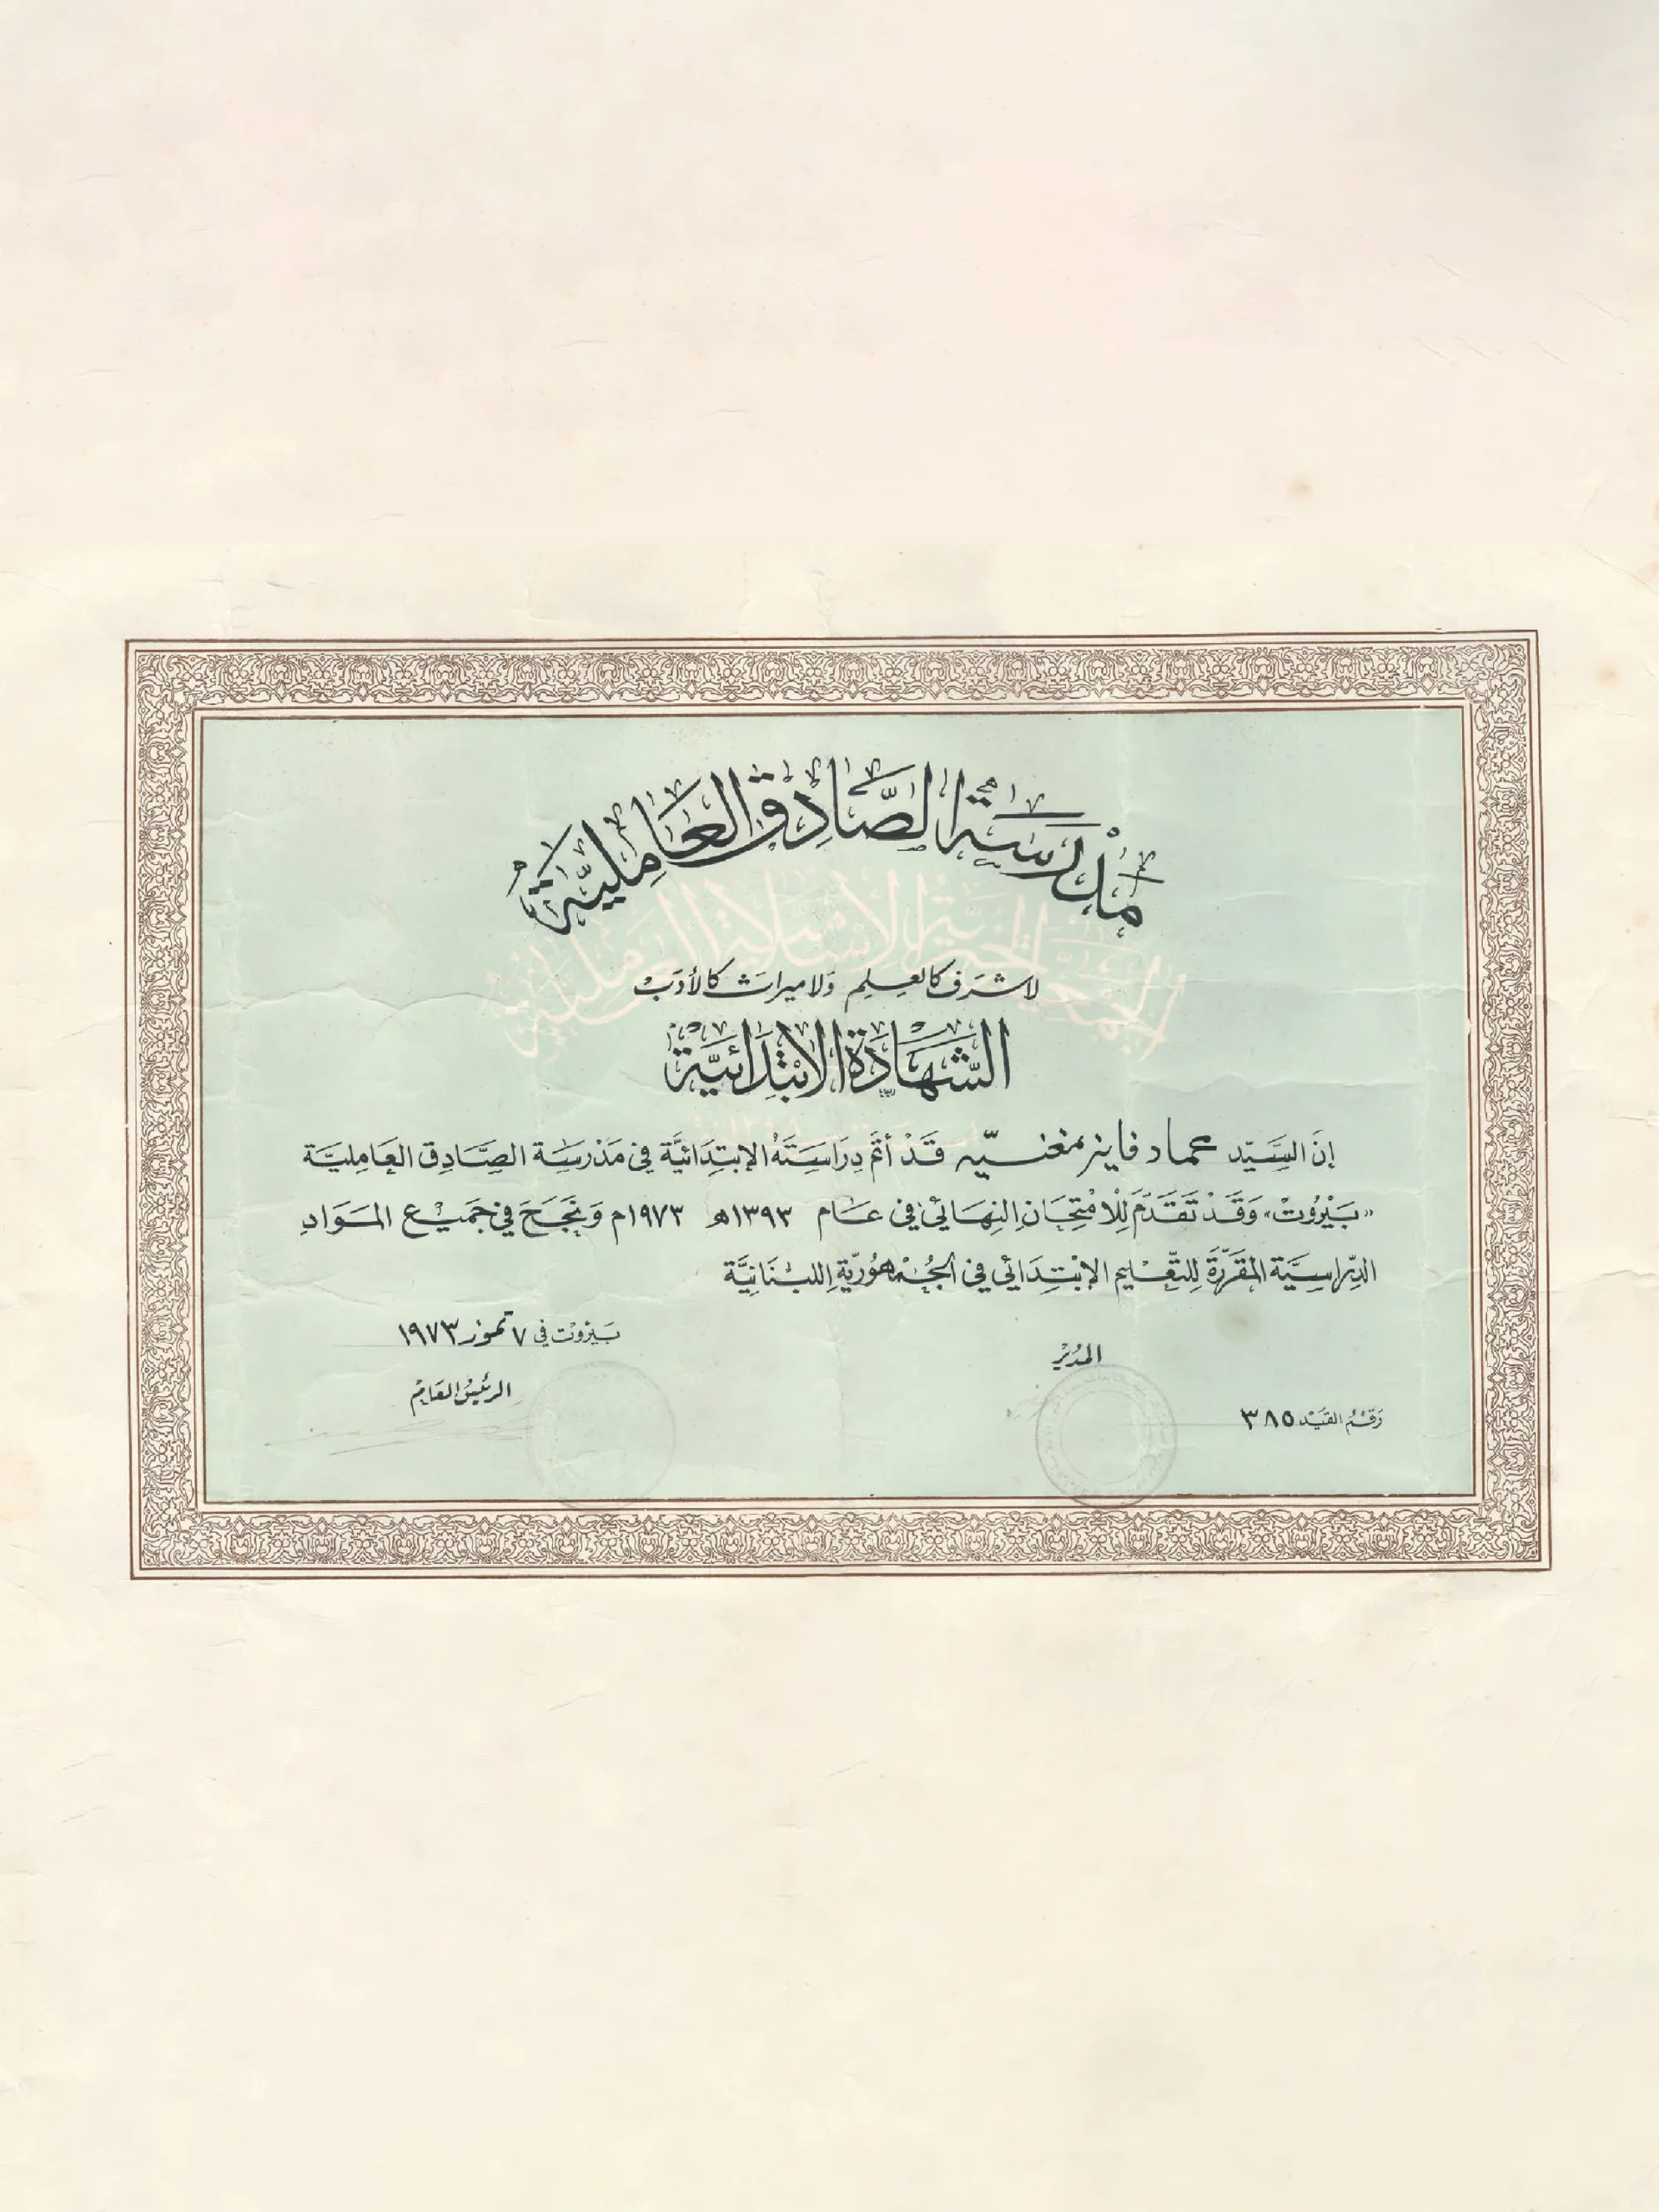 مَدْرَسَةُ الصَّادِقِ العَامِلِيَّةُ
الجمعية الخيرية الإسلامية العاملية
لا شَرَف كالعِلم وَلا ميراث كالأدَبْ
الشَّهَادَةُ الابْتِدَائِيَّةُ
إنَّ السَّيِّد عماد فايز مغنيّه قَدْ أتمَّ دِرَاسَتَهُ الإبتِدَائيَّةَ في مَدْرسَة الصَّادِق العَامِليَّة
«بَيْرُوتْ» وَقَدْ تَقَدَّمَ لِلْامْتِحَانِ النِهَائيِّ في عَام ١٣٩٣هـ ١٩٧٣م وَنَجَحَ في جَميْع المَوَادِ
الدِّرَاسِيَّةِ المقَرَّرَةِ لِلتَّعْليمِ الإبْتِدَائي في الجُمْهُورِيَّةِ اللبْنَانِيَّة
بَيْروُت في ٧ تموز ١٩٧٣
المُديْرُ
الرئيْسُ العَامْ
رَقْمُ القَيْد ٣٨٥